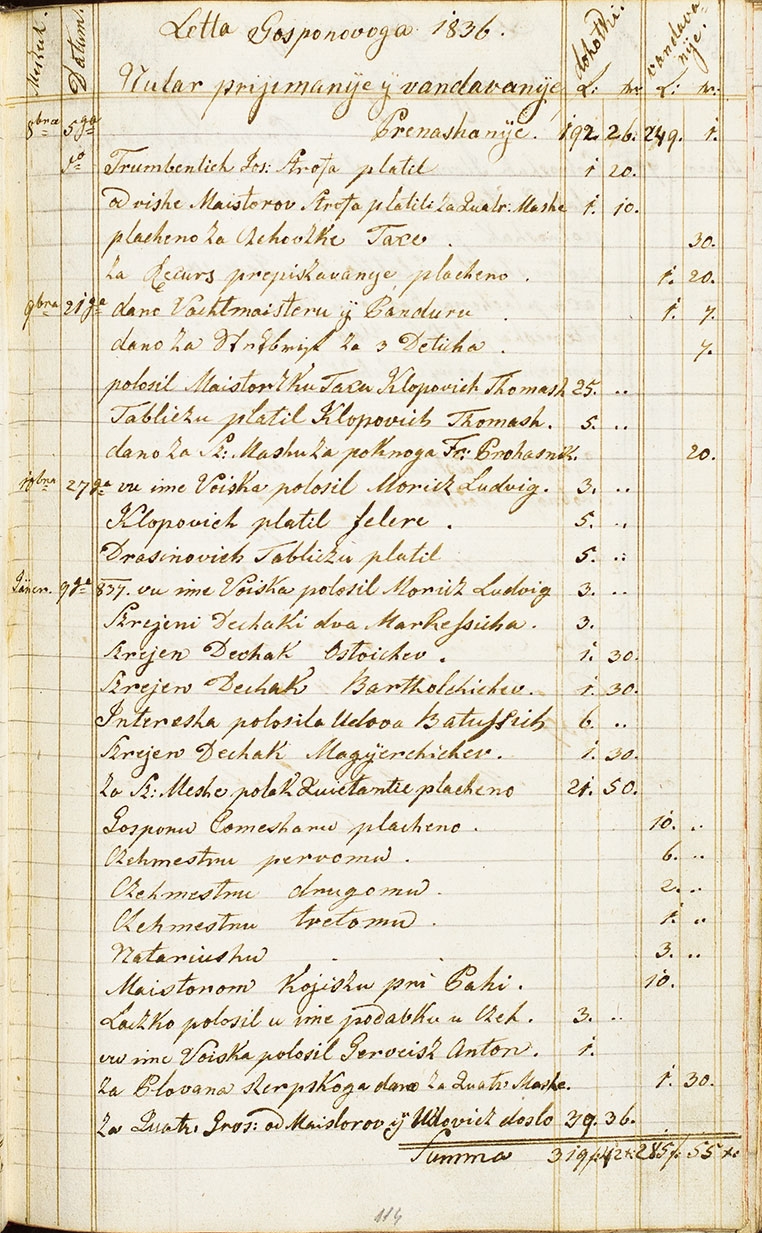 Letta Gosponovoga 1836.
Meszecz. Datum. Nutar prijimanÿe ÿ vandavanÿe dohotki. vandavanÿe.
f: xr. f: xr.
Prenashanÿe. 192. 26. 249. 1.
8bra 5ga
5o Trumbentich Jos: Strofa platil 1 20.
od vishe Maistorov Strofa platili za Quatr: Mashe 1. 10.
placheno za Czehovzke Taxe . 30.
za Recurs prepiszavanye placheno . 1. 20.
9bra 21ga dano Vachtmaisteru ÿ Panduru . 1. 7.
dano za za 3 Deticha . 7.
polosil Maistorzku Taxu Klopovich Thomash 25. ..
Tabliczu platil Klopovich Thomash. 5. ..
dano za Sz: Mashu za poknoga Fr: Prohasnik. 20.
10bra 27ga vu ime Voiska polosil Moricz Ludvig. 3. ..
Klopovich platil felere . 5. ..
Drasinovich Tabliczu platil 5. ..
Jäner. 9ga 837. vu ime Voiska polosil Moricz Ludvig 3. ..
Szrejeni Dechaki dva Markessicha . 3.
Szrejen Dechak Ostoichev . 1. 30.
Szrejen Dechak Bartholchichev. 1. 30.
Interesha polosila Udova Batussich 6 ..
Szrejen Dechak Magÿerchichev. 1. 30.
za Sz: Meshe polak Quietantie placheno 21. 50.
Gosponu Comesharu placheno . 10. ..
Czehmestru pervomu . 6. ..
Czehmestru drugomu . 2. ..
Czehmestru tretomu . 1. ..
Notariushu . . 3. ..
Maistorom kojiszu pri Pahi . 10.
Laczko polosil u ime podabku u Czeh . 3. ..
vu ime Voiska polosil Gerveisz Anton . 1.
za Plovana szerpskoga dano za Quatr. Mashe. 1. 30.
za Quatr. Gros: od Maistorov ÿ Udovicz doslo 39. 36.
Summa 319f: 42x: 285f: 55x:
114